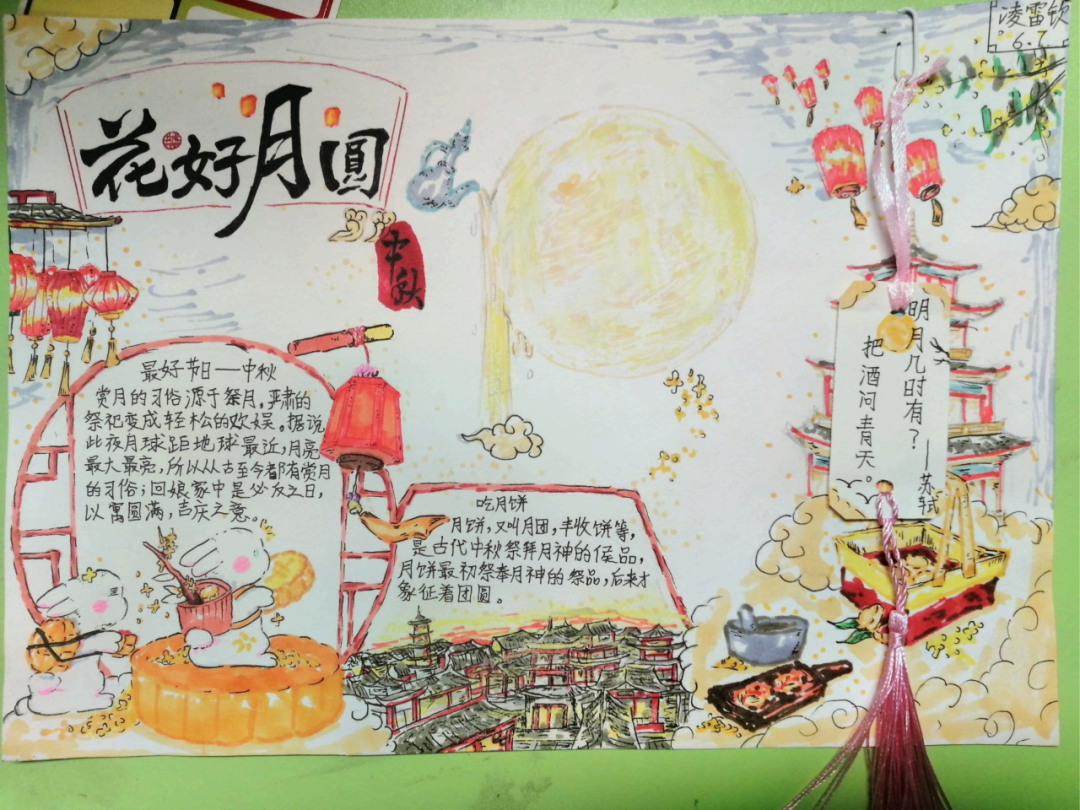 花好月圆
中秋
凌雷钦
6.7
最好节日——中秋
赏月的习俗源于祭月,严肃的
祭祀变成轻松的欢娱。据说
此夜月球距地球最近,月亮
最大最亮,所以从古至今都有赏月
的习俗;回娘家中是必反之日,
以寓圆满,吉庆之意。
吃月饼
月饼,又叫月团,丰收饼等,
是古代中秋祭拜月神的供品,
月饼最初祭奉月神的祭品,后来才
象征着团圆。
明月几时有?
把酒问青天。
——苏轼